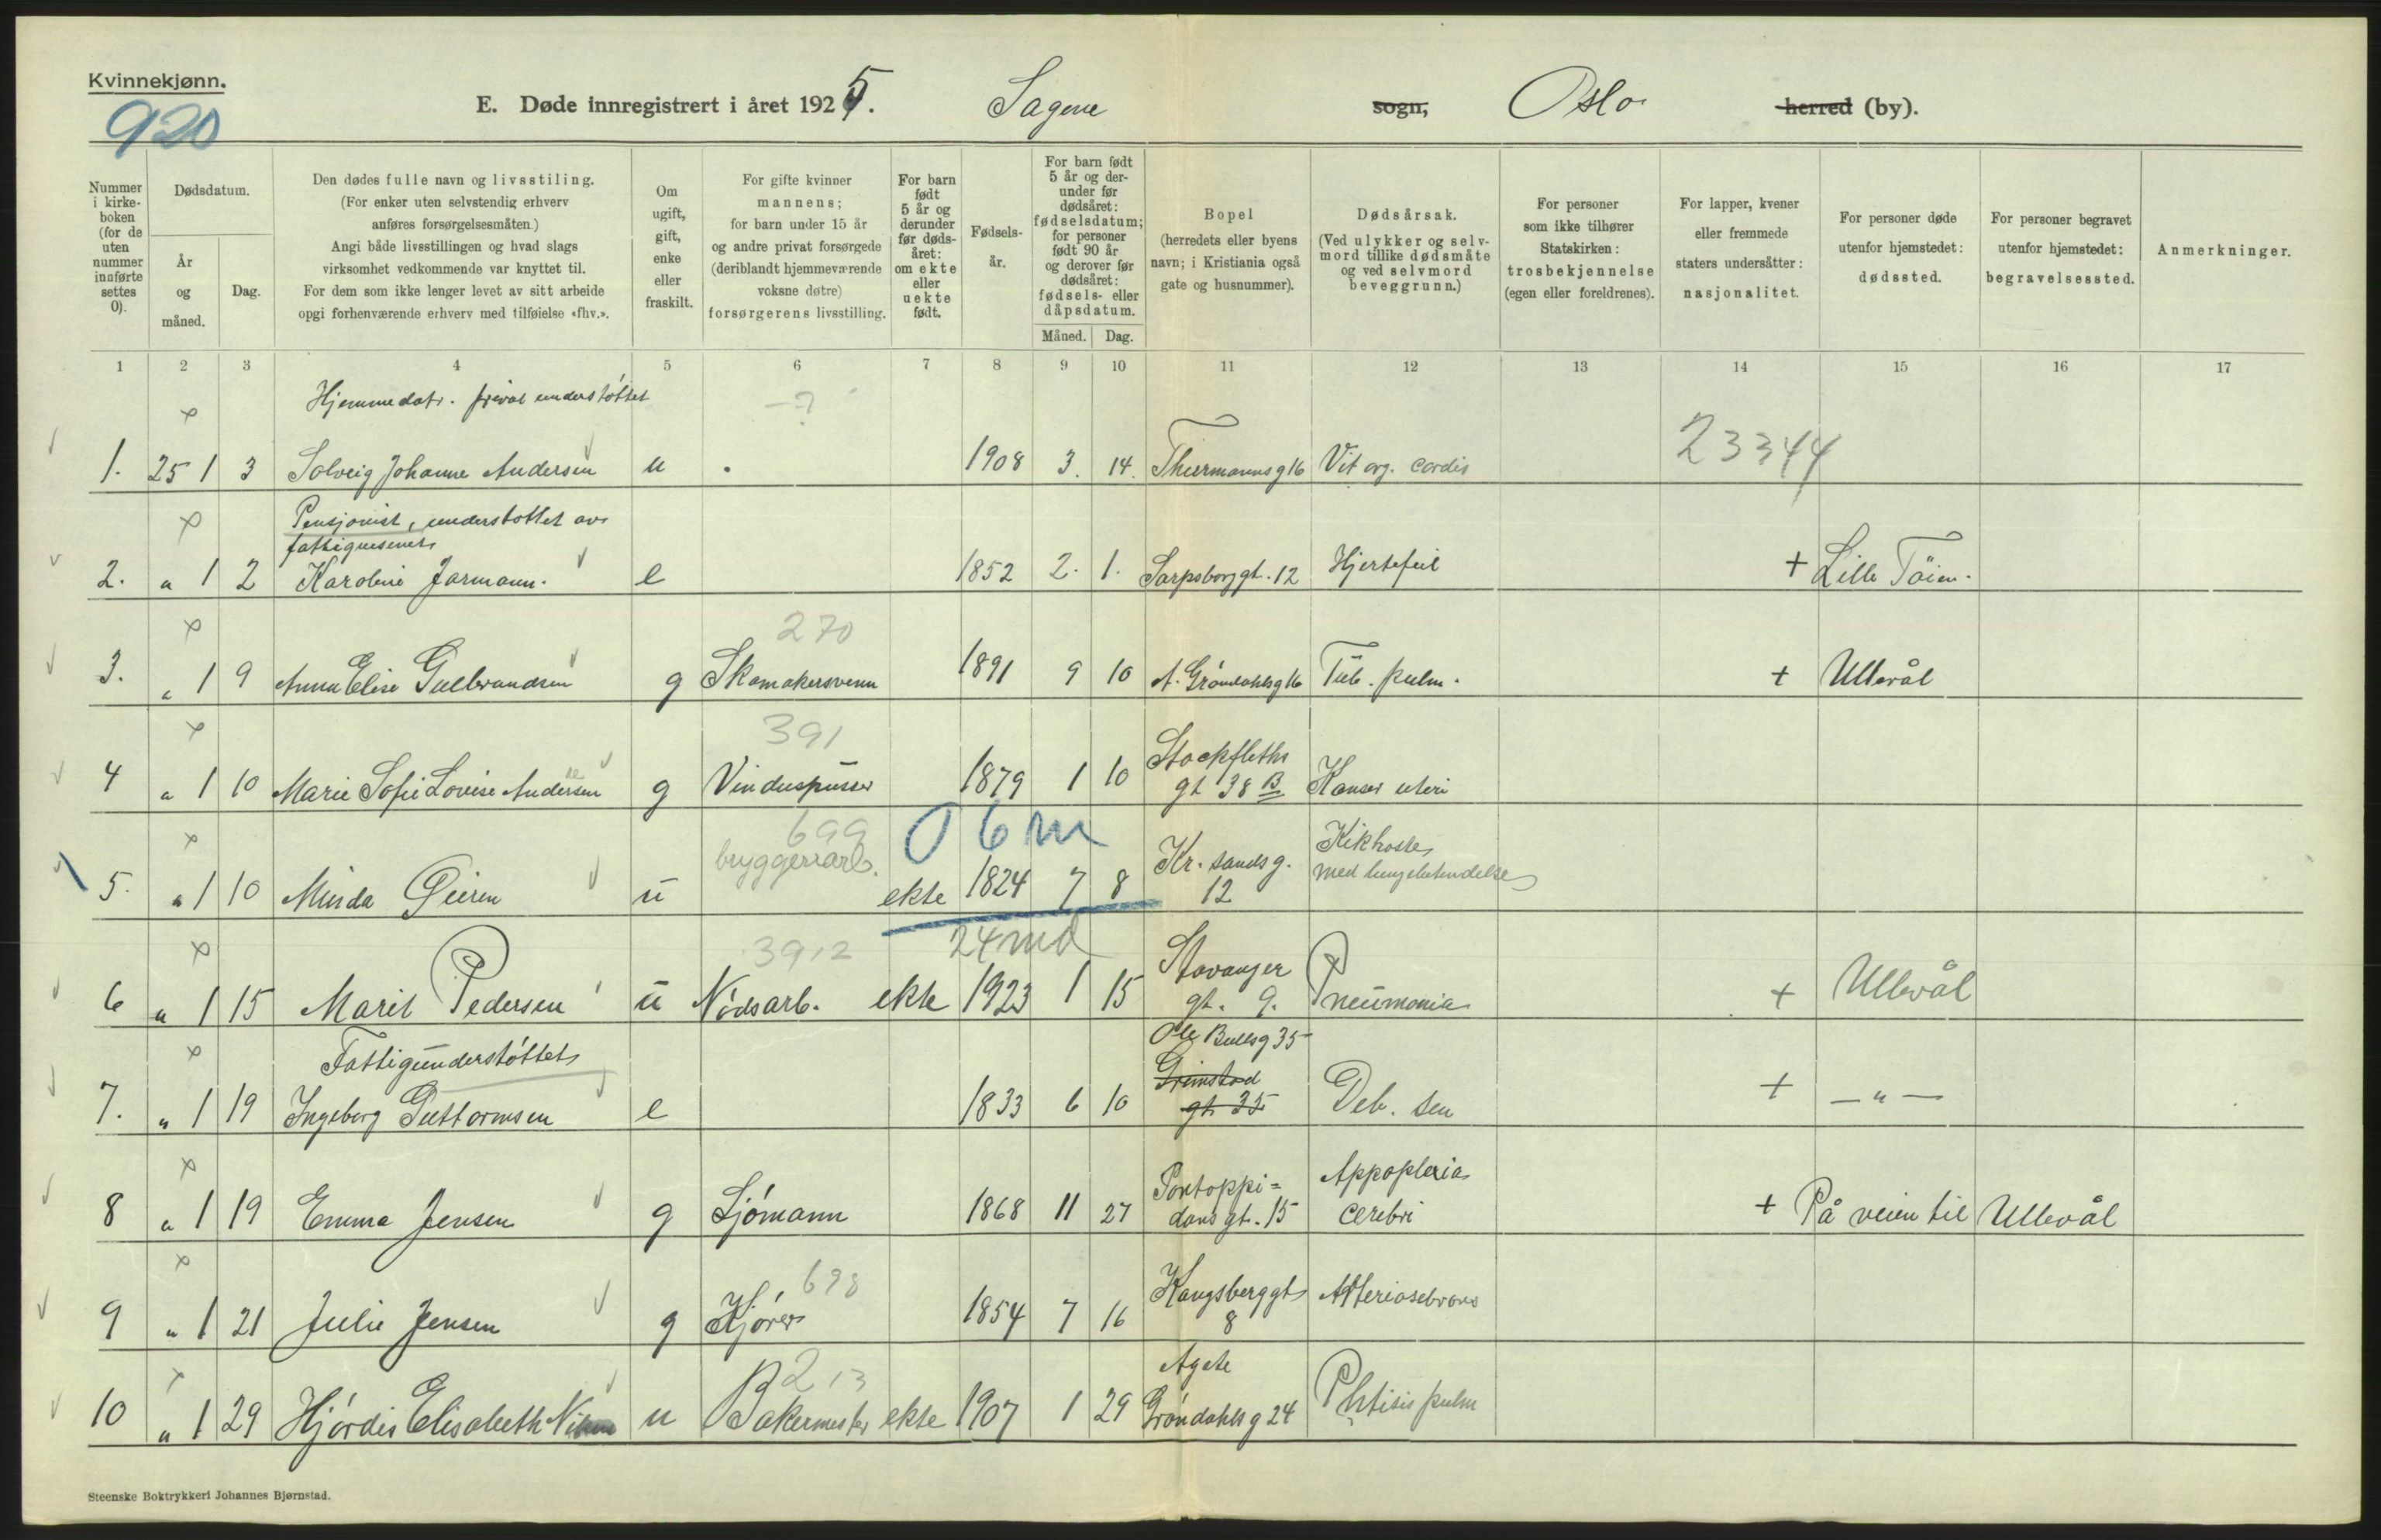 Kvinnekjønn.
920
E. Døde innregistrert i året 1925. Sagene sogn, Oslo herred (by).
Nummer i kirkeboken (for de uten nummer innførte settes 0).
Dødsdatum.
År og måned.
Dag.
Den dødes fulle navn og livsstiling.
(For enker uten selvstendig erhverv
anføres forsørgelsesmåten.)
Angi både livsstillingen og hvad slags
virksomhet vedkommende var knyttet til.
For dem som ikke lenger levet av sitt arbeide
opgi forhenværende erhverv med tilføielse «fhv.».
Om ugift, gift, enke eller fraskilt.
For gifte kvinner
mannens;
for barn under 15 år
og andre privat forsørgede
(deriblandt hjemmeværende
voksne døtre)
forsørgerens livsstilling.
For barn født 5 år og derunder før dødsåret: om ekte eller uekte født.
Fødselsår.
For barn født 5 år og derunder før dødsåret: fødselsdatum; for personer født 90 år og derover før dødsåret: fødsels- eller dåpsdatum.
Måned. Dag.
Bopel
(herredets eller byens
navn; i Kristiania også
gate og husnummer).
Dødsårsak.
(Ved ulykker og selvmord tillike dødsmåte
og ved selvmord
beveggrunn.)
For personer
som ikke tilhører
Statskirken:
trosbekjennelse
(egen eller foreldrenes).
For lapper, kvener
eller fremmede
staters undersåtter:
nasjonalitet.
For personer døde
utenfor hjemstedet:
dødssted.
For personer begravet
utenfor hjemstedet:
begravelsessted.
Anmerkninger.
1 2 3 4 5 6 7 8 9 10 11 12 13 14 15 16 17
Hjemmedatr. privat understøttet -?
1. 25 1 3 Solveig Johanne Andersen u . 1908 3. 14. Thurmannsg 16 Vit org. cordis 23344
Pensjonist, understøttet av
fattigvesenet
2. " 1 2 Karoline Jarmann. e 1852 2. 1. Sarpsborggt. 12 Hjertefeil + Lille Tøien.
270
3. " 1 9 Anna Elise Gulbrandsen g Skomakersvenn 1891 9 10 A. Grøndahlsg 16 Tub. pulm. + Ullevål
391
4 " 1 10 Marie Sofie Lovise Andersen g Vinduspusser 1879 1 10 Stockfleths
gt 38 B Kanser uteri
699 0 6 m
bryggeriarb.
5. " 1 10 Minda Geiren u ekte 1824 7 8 Kr.sandsg.
12 Kikhoste
med lungebetendelse
3912 24 md
6 " 1 15 Marit Pedersen u Nødsarb. ekte 1923 1 15 Stavanger
gt. 9. Pneumonia + Ullevål
Fattigunderstøttet
Ole Bullsg 35
7. " 1 19 Ingeborg Guttormsen e 1833 6 10 Grimstad
gt. 35 Deb. sen + — " —
8 " 1 19 Emma Jensen g Sjømann 1868 11 27 Pontoppi=
dans gt. 15 Appoplexia
cerebri + På veien til Ullevål
698
9 " 1 21 Julie Jensen g Kjører 1854 7 16 Kongsberggt
8
213
10 " 1 29 Hjørdis Elisabeth u Bakermester ekte 1907 1 29 Agate
Grøndahlsg 24 Phtisis pulm
Steenske Boktrykkeri Johannes Bjørnstad.